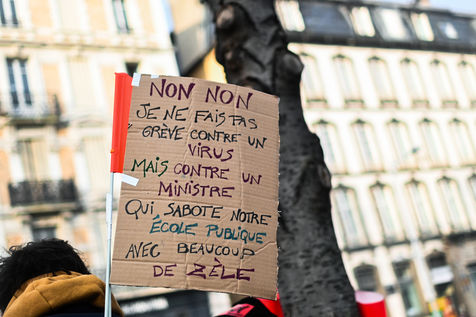 NON NON
JE NE FAIS PAS
GRÈVE CONTRE UN
VIRUS
MAIS CONTRE UN
MINISTRE
QUI SABOTE NOTRE
ÉCOLE PUBLIQUE
AVEC BEAUCOUP
DE ZÈLE